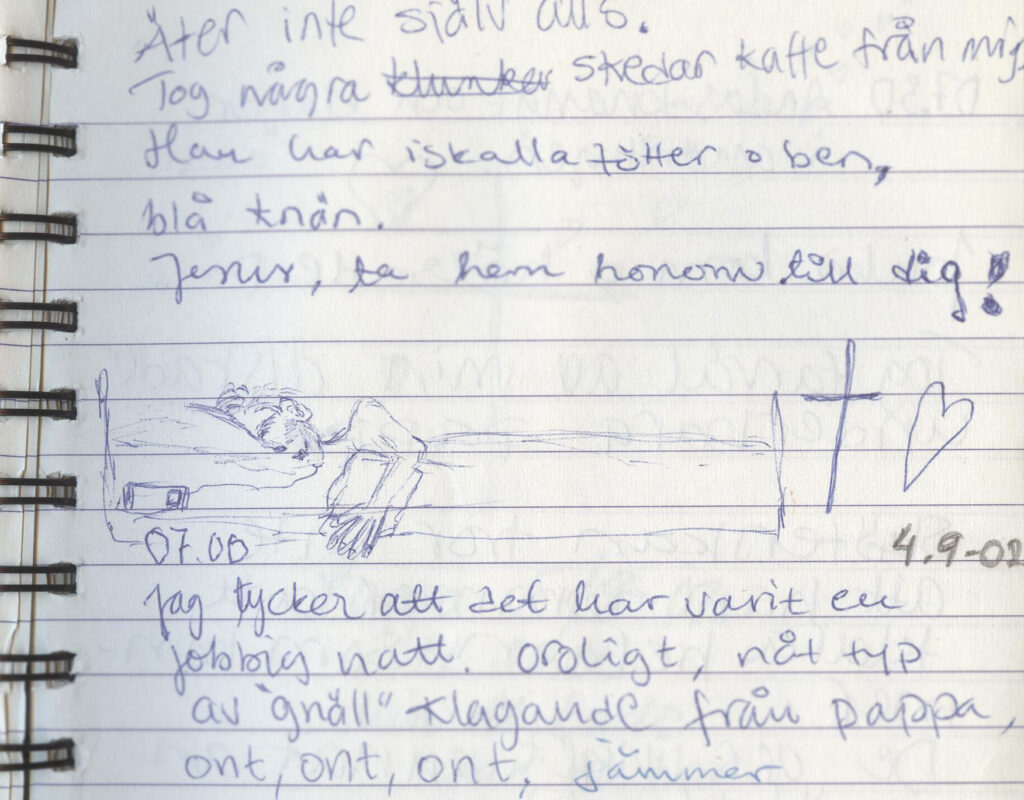 Äter inte själv alls.
Tog några klunkar skedar kaffe från mig.
Han har iskalla fötter o ben,
blå knän.
Jesus, ta hem honom till dig!
07.00
4.9-02
Jag tycker att det har varit en
jobbig natt. Oroligt, nåt typ
av "gnäll" klagande från pappa,
ont, ont, ont, jämmer